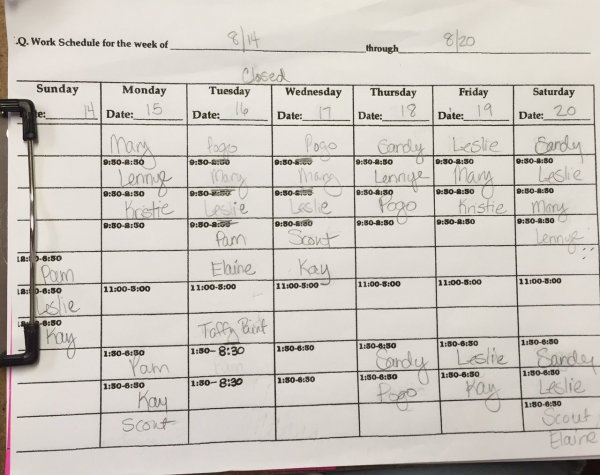 .Q. Work Schedule for the week of 8/14 through 8/20
Closed
Sunday Monday Tuesday Wednesday Thursday Friday Saturday
te: 14 Date: 15 Date: 16 Date: 17 Date: 18 Date: 19 Date: 20
Mary Pogo Pogo Sandy Leslie Sandy
9:30-8:30 9:30-8:30 9:30-8:30 9:30-8:30 9:30-8:30 9:30-8:30
Lennye Mary Mary Lennye Mary Leslie
9:30-8:30 9:30-8:30 9:30-8:30 9:30-8:30 9:30-8:30 9:30-8:30
Kristie Leslie Leslie Pogo Kristie Mary
9:30-8:30 9:30-8:30 9:30-8:30 9:30-8:30 9:30-8:30 9:30-8:30
Pam Scout Lennye
-6:30
Pam Elaine Kay
-6:30 11:00-5:00 11:00-5:00 11:00-5:00 11:00-5:00 11:00-5:00 11:00-5:00
Leslie
-6:30
Kay Taffy Paint
1:30-6:30 1:30-8:30 1:30-6:30 1:30-6:30 1:30-6:30 1:30-6:30
Pam Sandy Leslie Sandy
1:30-6:30 1:30-8:30 1:30-6:30 1:30-6:30 1:30-6:30 1:30-6:30
Kay Pogo Kay Leslie
1:30-6:30
Scout Scout
Elaine